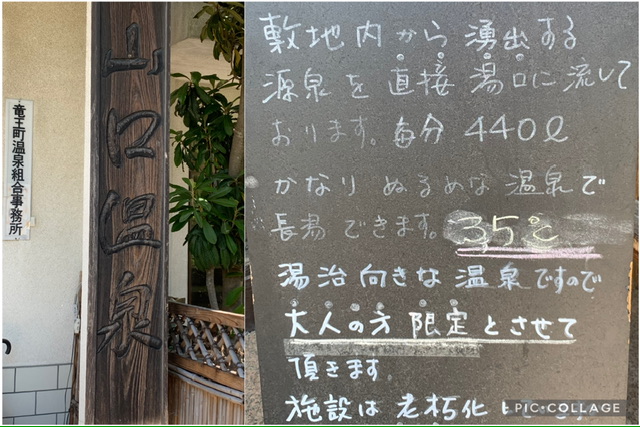 竜王町温泉組合事務所
山口温泉
敷地内から湧出する
源泉を直接湯口に流して
おります。毎分440ℓ
かなりぬるめな温泉で
長湯できます。35℃
湯治向きな温泉ですので
大人の方限定とさせて
頂きます
施設は老朽化
PIC·COLLAGE